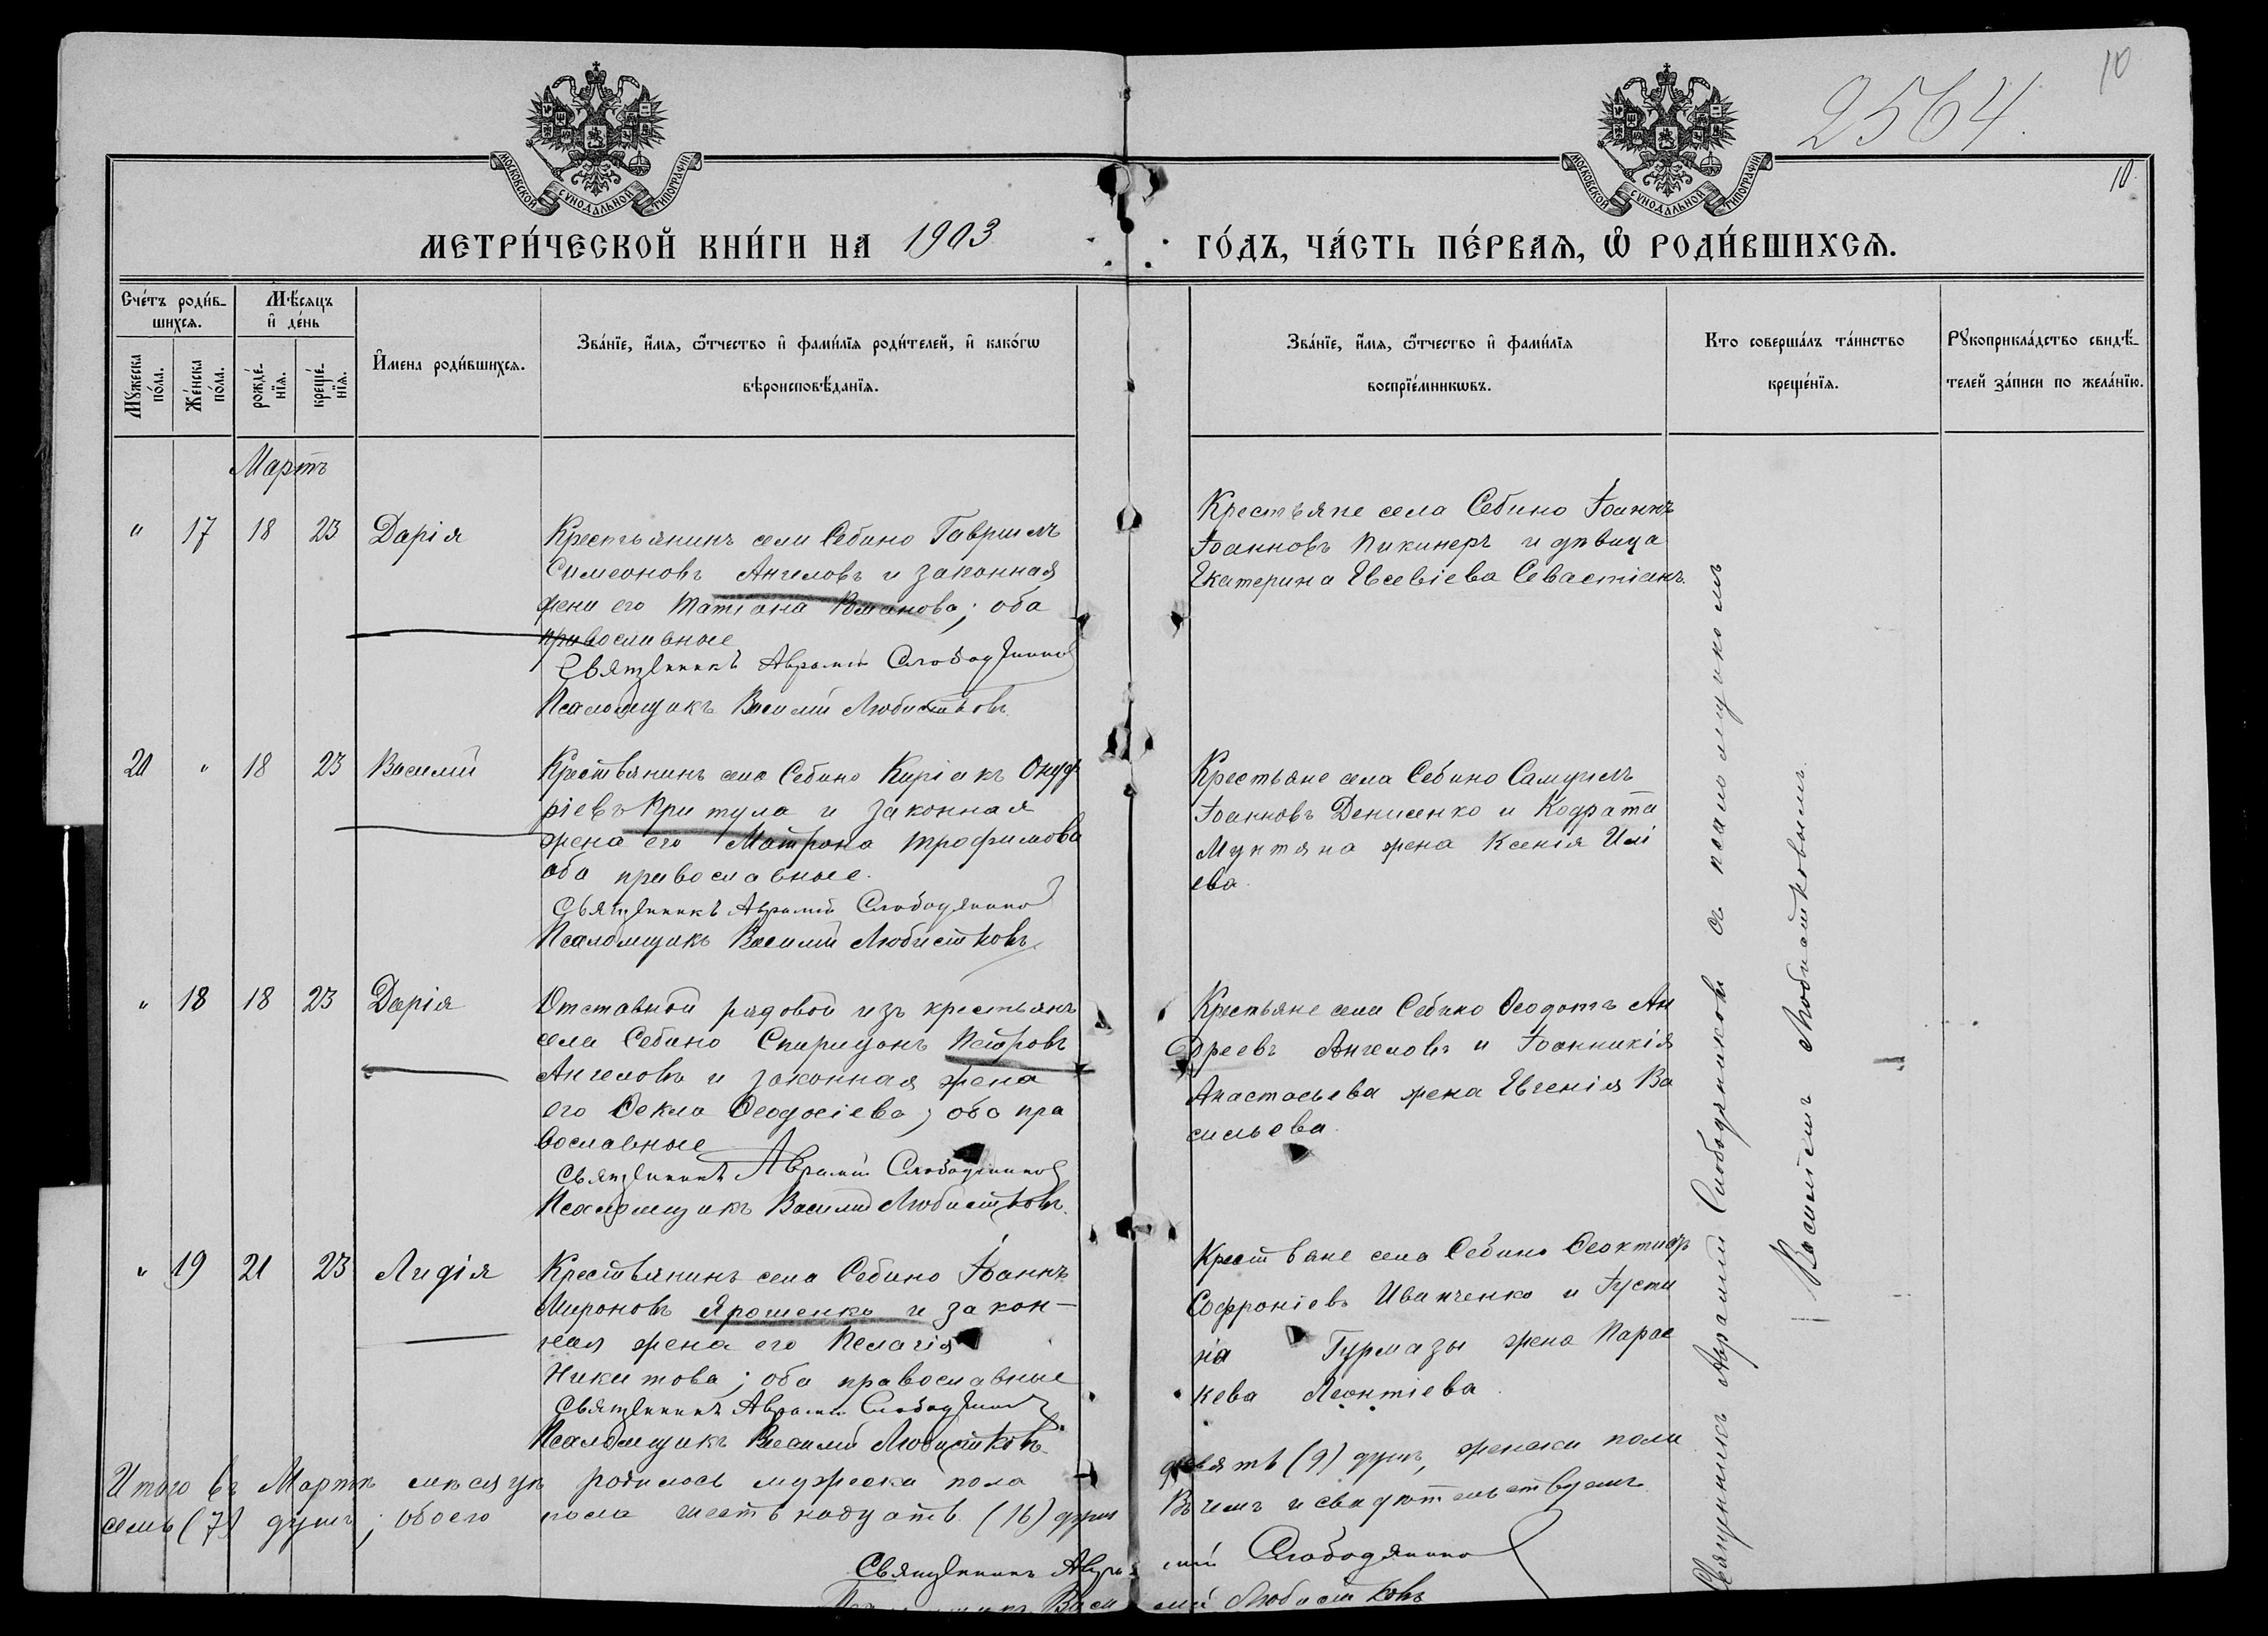 2564.
10
10.
МОСКОВСКОЙ СѴНОДАЛЬНОЙ ТИПОГРАФІИ
МОСКОВСКОЙ СѴНОДАЛЬНОЙ ТИПОГРАФІИ
МЕТРИ́ЧЕСКОЙ КНИ́ГИ НА 1903 ГО́ДЪ, ЧА́СТЬ ПЕ́РВАЯ, Ѽ РОДИ́ВШИХСЯ.
Сче́тъ роди́в-
шихся.
Мꙋжеска
по́ла.
Же́нска
по́ла.
Мѣ́сяцъ
и҆ де́нь
рожде́-
нїя.
креще́-
нїя.
И҆мена роди́вшихся.
Зва́нїе, и҆́мя, ѻ҆́тчество и҆ фами́лїя роди́телей, и҆ како́гѡ
вѣроисповѣ́данїя.
Зва́нїе, и҆́мя, ѻ҆́тчество и҆ фами́лїя
воспрїе́мникѡвъ.
Кто соверша́лъ та́инство
креще́нїя.
Рꙋкоприкла́дство свидѣ́-
телей за́писи по жела́нїю.
Мартъ
" 17 18 23 Дарія
Крестьянинъ села Себино Гавриилъ
Симеоновъ Ангеловъ и законная
жена его Татіана Романова; оба
православные
Священникъ Аврамій Слободяников
Псаломщикъ Василій Любистковъ
Крестьяне села Себино Іоаннъ
Іоанновъ Пикинеръ и дѣвица
Екатерина Евсевіева Севастіанъ
20 " 18 23 Василій
Крестьянинъ села Себино Киріакъ Онуф
ріевъ Притула и законная
жена его Матрона Трофимова
оба православные.
Священникъ Аврамій Слободяников
Псаломщикъ Василій Любистковъ
Крестьяне села Себино Самуилъ
Іоанновъ Денисенко и Кодрата
Мунтяна жена Ксенія Илі
ева.
" 18 18 23 Дарія
Отставной рядовой изъ крестьянъ
села Себино Спиридонъ Петровъ
Ангеловъ и законная жена
его Ѳекла Ѳеодосіева; оба пра
вославные
Священникъ Аврамій Слободяников
Псаломщикъ Василій Любистковъ.
Крестьяне села Себино Ѳеодотъ Ан
дреевъ Ангеловъ и Іоанникія
Анастасьева жена Евгенія Ва
сильева.
" 19 21 23 Лидія
Крестьянинъ села Себино Іоаннъ
Мироновъ Ярошенко и закон-
ная жена его Пелагія
Никитова; оба православные
Священникъ Аврамій Слободяников
Псаломщикъ Василій Любистковъ
Крестьяне села Себино Ѳеоктистъ
Софроніевъ Иванченко и Іусти
на Гурмазы жена Парас
кева Леонтіева.
Священникъ Аврамій Слободяниковъ съ псаломщикомъ
Василіемъ Любистковымъ.
Итого въ Мартѣ мѣсяцѣ родилось мужеска пола девять (9) душъ, женска пола
семь (7) душъ; обоего пола шестьнадцать (16) душъ Въ чемъ и свидѣтельствуемъ
Священникъ Аврамій Слободяников
Псаломщикъ Василій Любистковъ